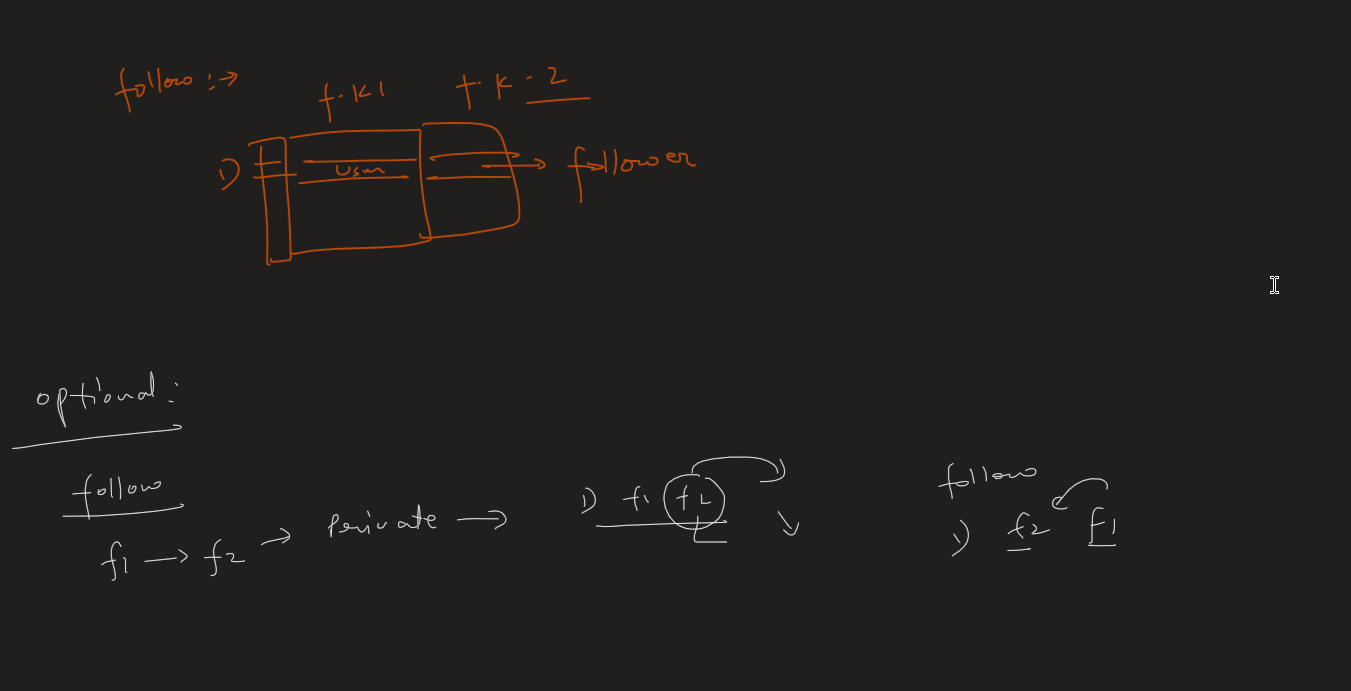 follow :→
f.k1 f.k-2
1) user → follower
optional:
follow
f1 → f2 → Private → 1) f1 f2
follow
1) f2 f1